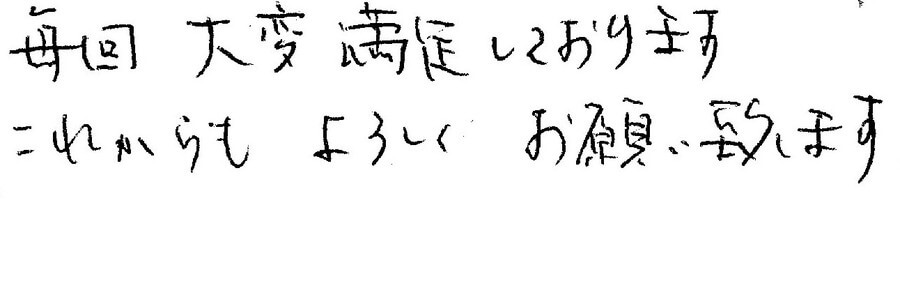 毎回 大変 満足しております
これからも よろしく お願い致します